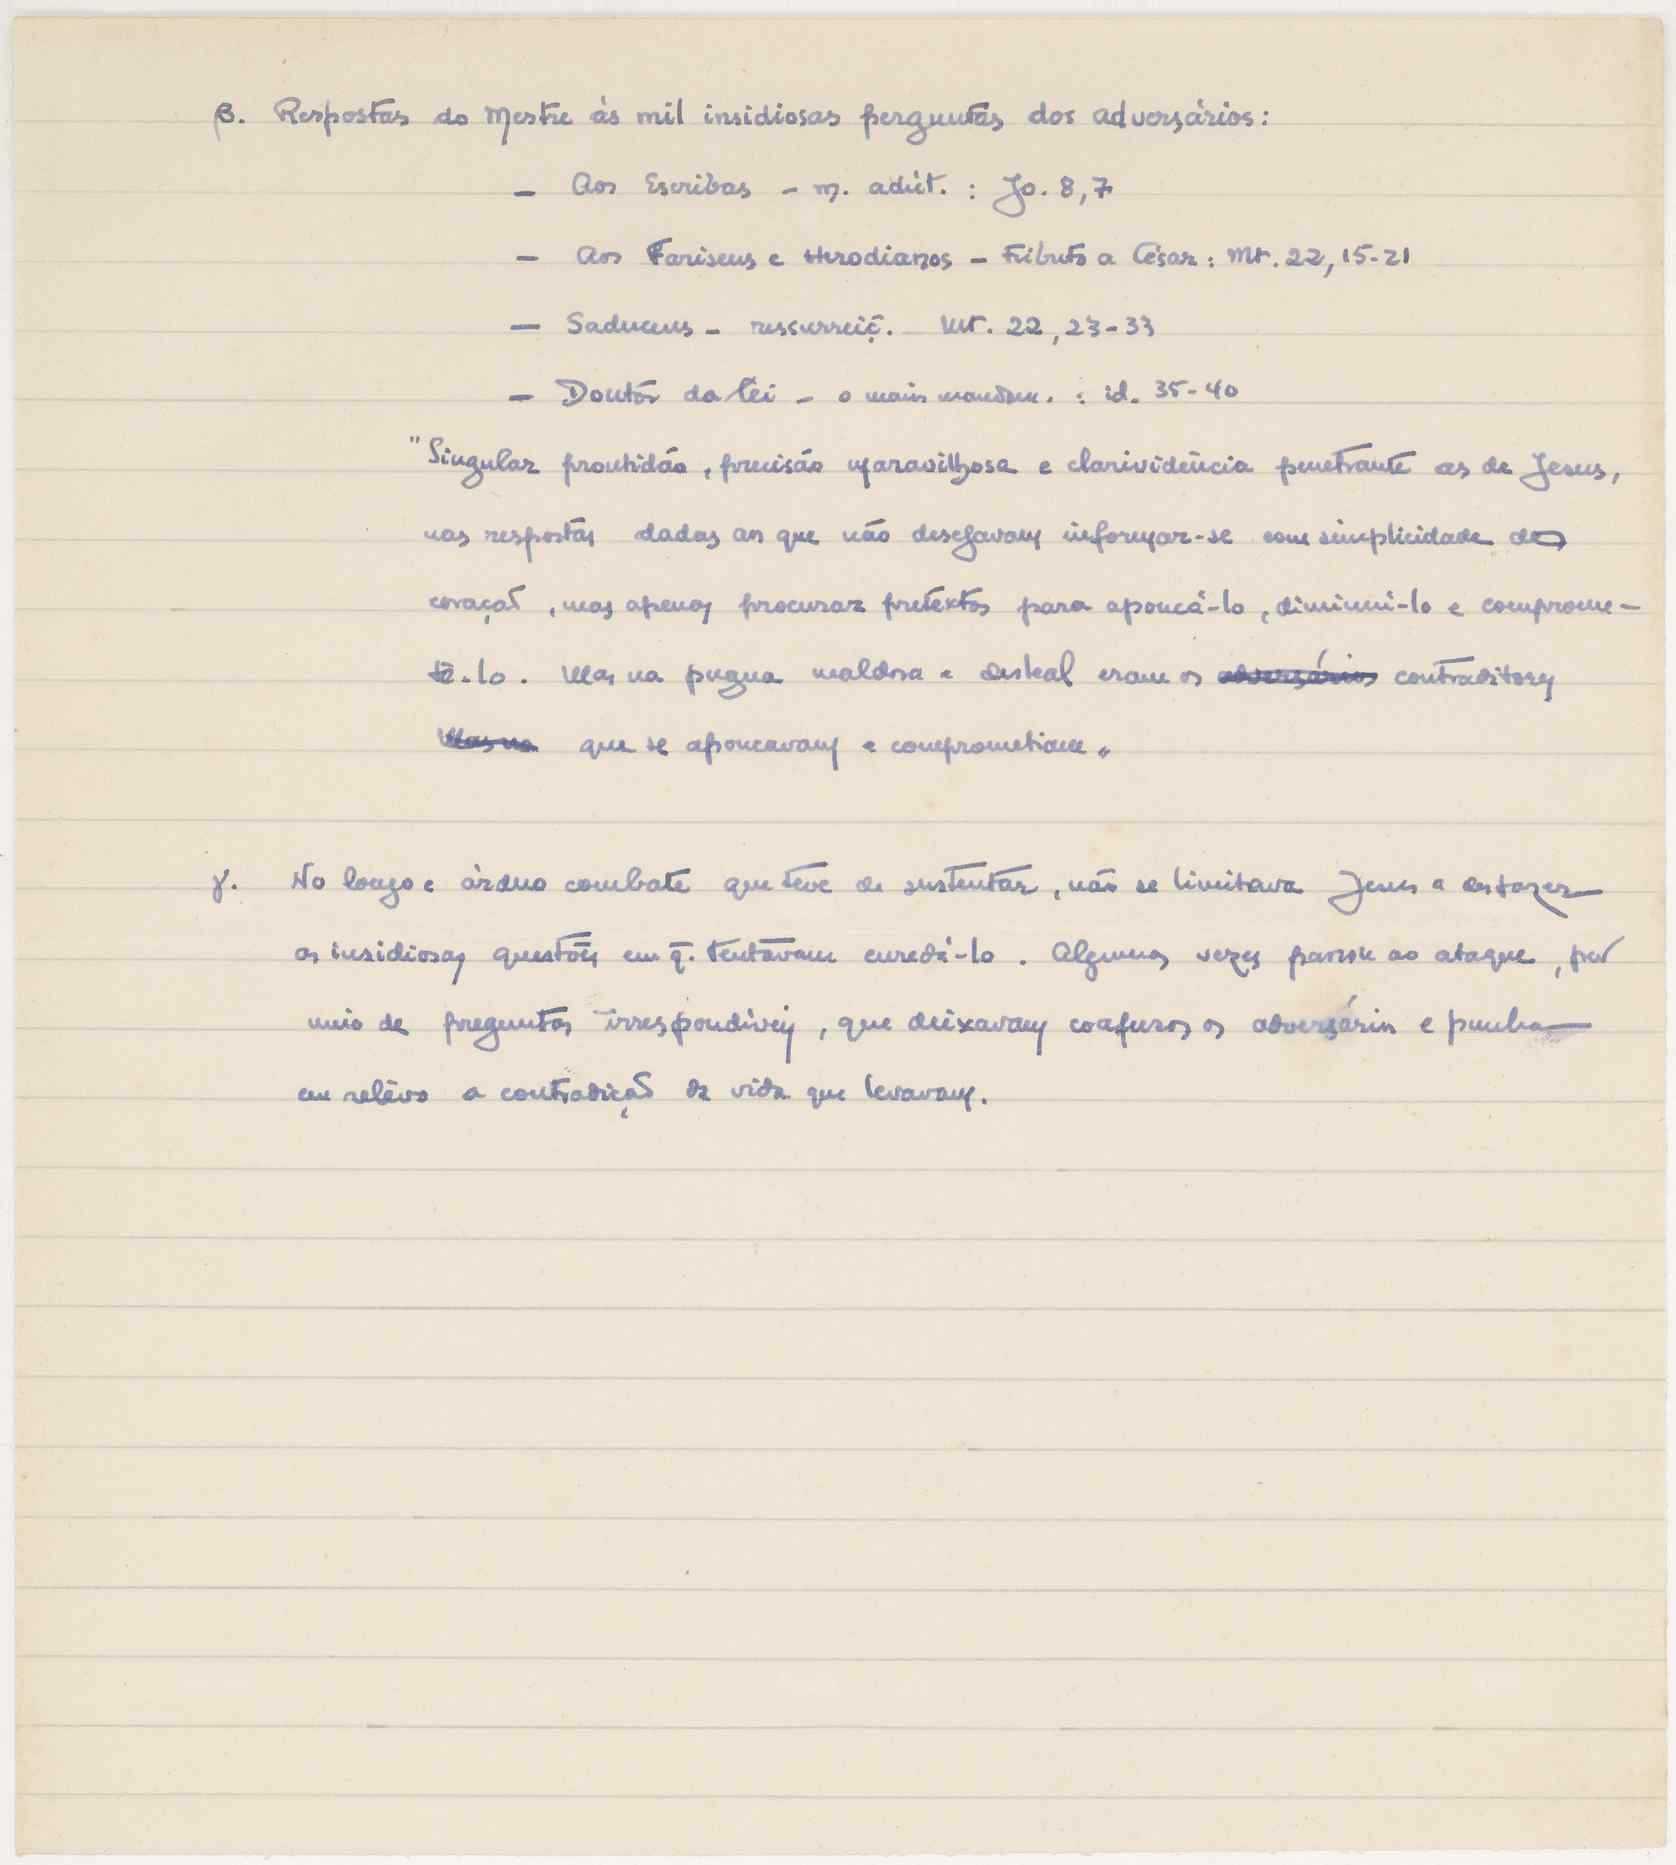 β. Respostas do Mestre às mil insidiosas perguntas dos adversários:
— Aos Escribas - m. adúlt. : Jo. 8,7
— Aos Fariseus e Herodianos - Tributo a César: Mt. 22, 15-21
— Saduceus - ressurreiç. Mt. 22, 23-33
— Doutor da lei - o maior mandam. : id. 35-40
"Singular prontidão, precisão maravilhosa e clarividência penetrante as de Jesus,
nas respostas dadas aos que não desejavam informar-se com simplicidade de
coração, mas apenas procurar pretextos para apoucá-lo, diminuí-lo e comprome-
tê-lo. Mas na pugna maldosa e desleal eram os adversários contraditores
Mas na que se apoucavam e comprometiam"
γ. No longo e árduo combate que teve de sustentar, não se limitava Jesus a desfazer
as insidiosas questões em q. tentavam enredá-lo. Algumas vezes passou ao ataque, por
meio de preguntas irrespondíveis, que deixavam confusos os adversários e punha
em relêvo a contradição da vida que levavam.